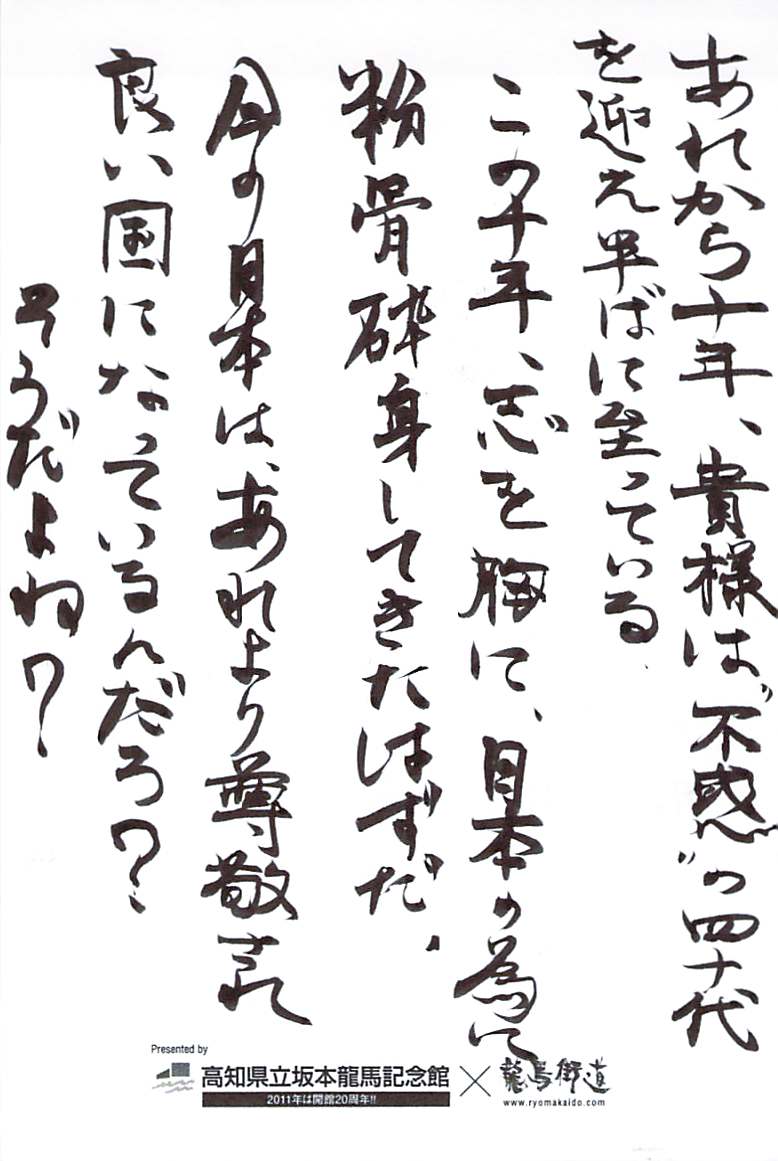 あれから十年、貴様は“不惑”の四十代
を迎え半ばに至っている
この十年、志を胸に、日本の為に
粉骨砕身してきたはずだ。
今の日本は、あれより尊敬され
良い国になっているんだろ?
そうだよね?
Presented by
高知県立坂本龍馬記念館
2011年は開館20周年!!
×
龍馬街道
www.ryomakaido.com